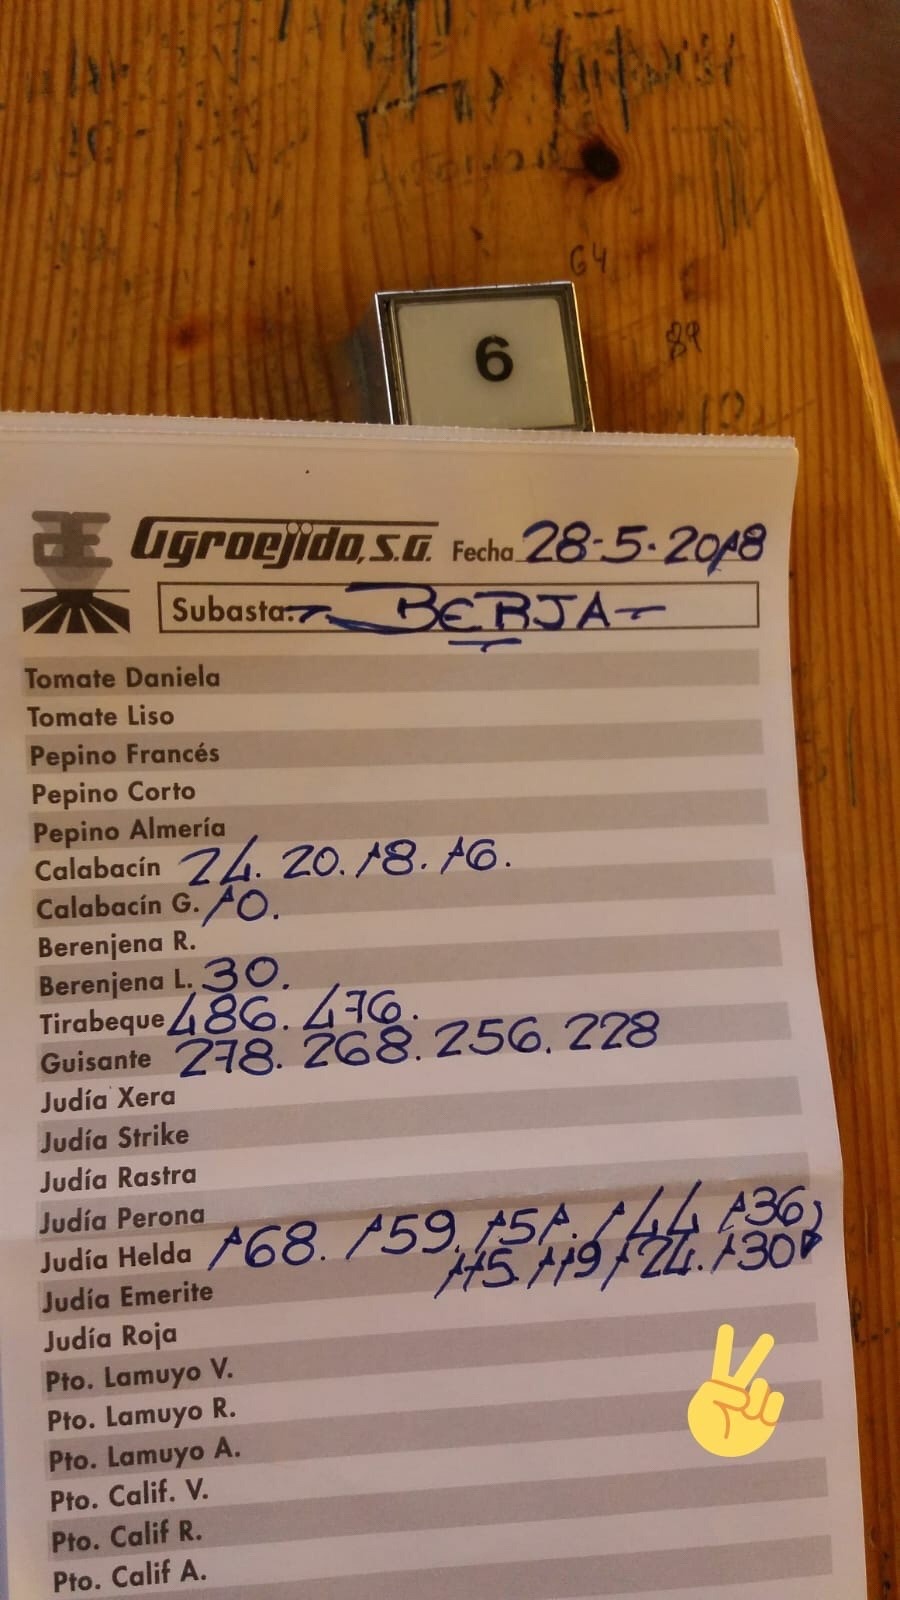 64
89
6
Agroejido, S.A. Fecha 28-5-2018
Subasta: BERJA
Tomate Daniela
Tomate Liso
Pepino Francés
Pepino Corto
Pepino Almería
Calabacín 24. 20. 18. 16.
Calabacín G. 10.
Berenjena R.
Berenjena L. 30.
Tirabeque 486. 476.
Guisante 278. 268. 256. 228
Judía Xera
Judía Strike
Judía Rastra
Judía Perona
Judía Helda 168. 159. 151. 144 136
115. 119 124. 130
Judía Emerite
Judía Roja
Pto. Lamuyo V.
Pto. Lamuyo R.
Pto. Lamuyo A.
Pto. Calif. V.
Pto. Calif R.
Pto. Calif A.